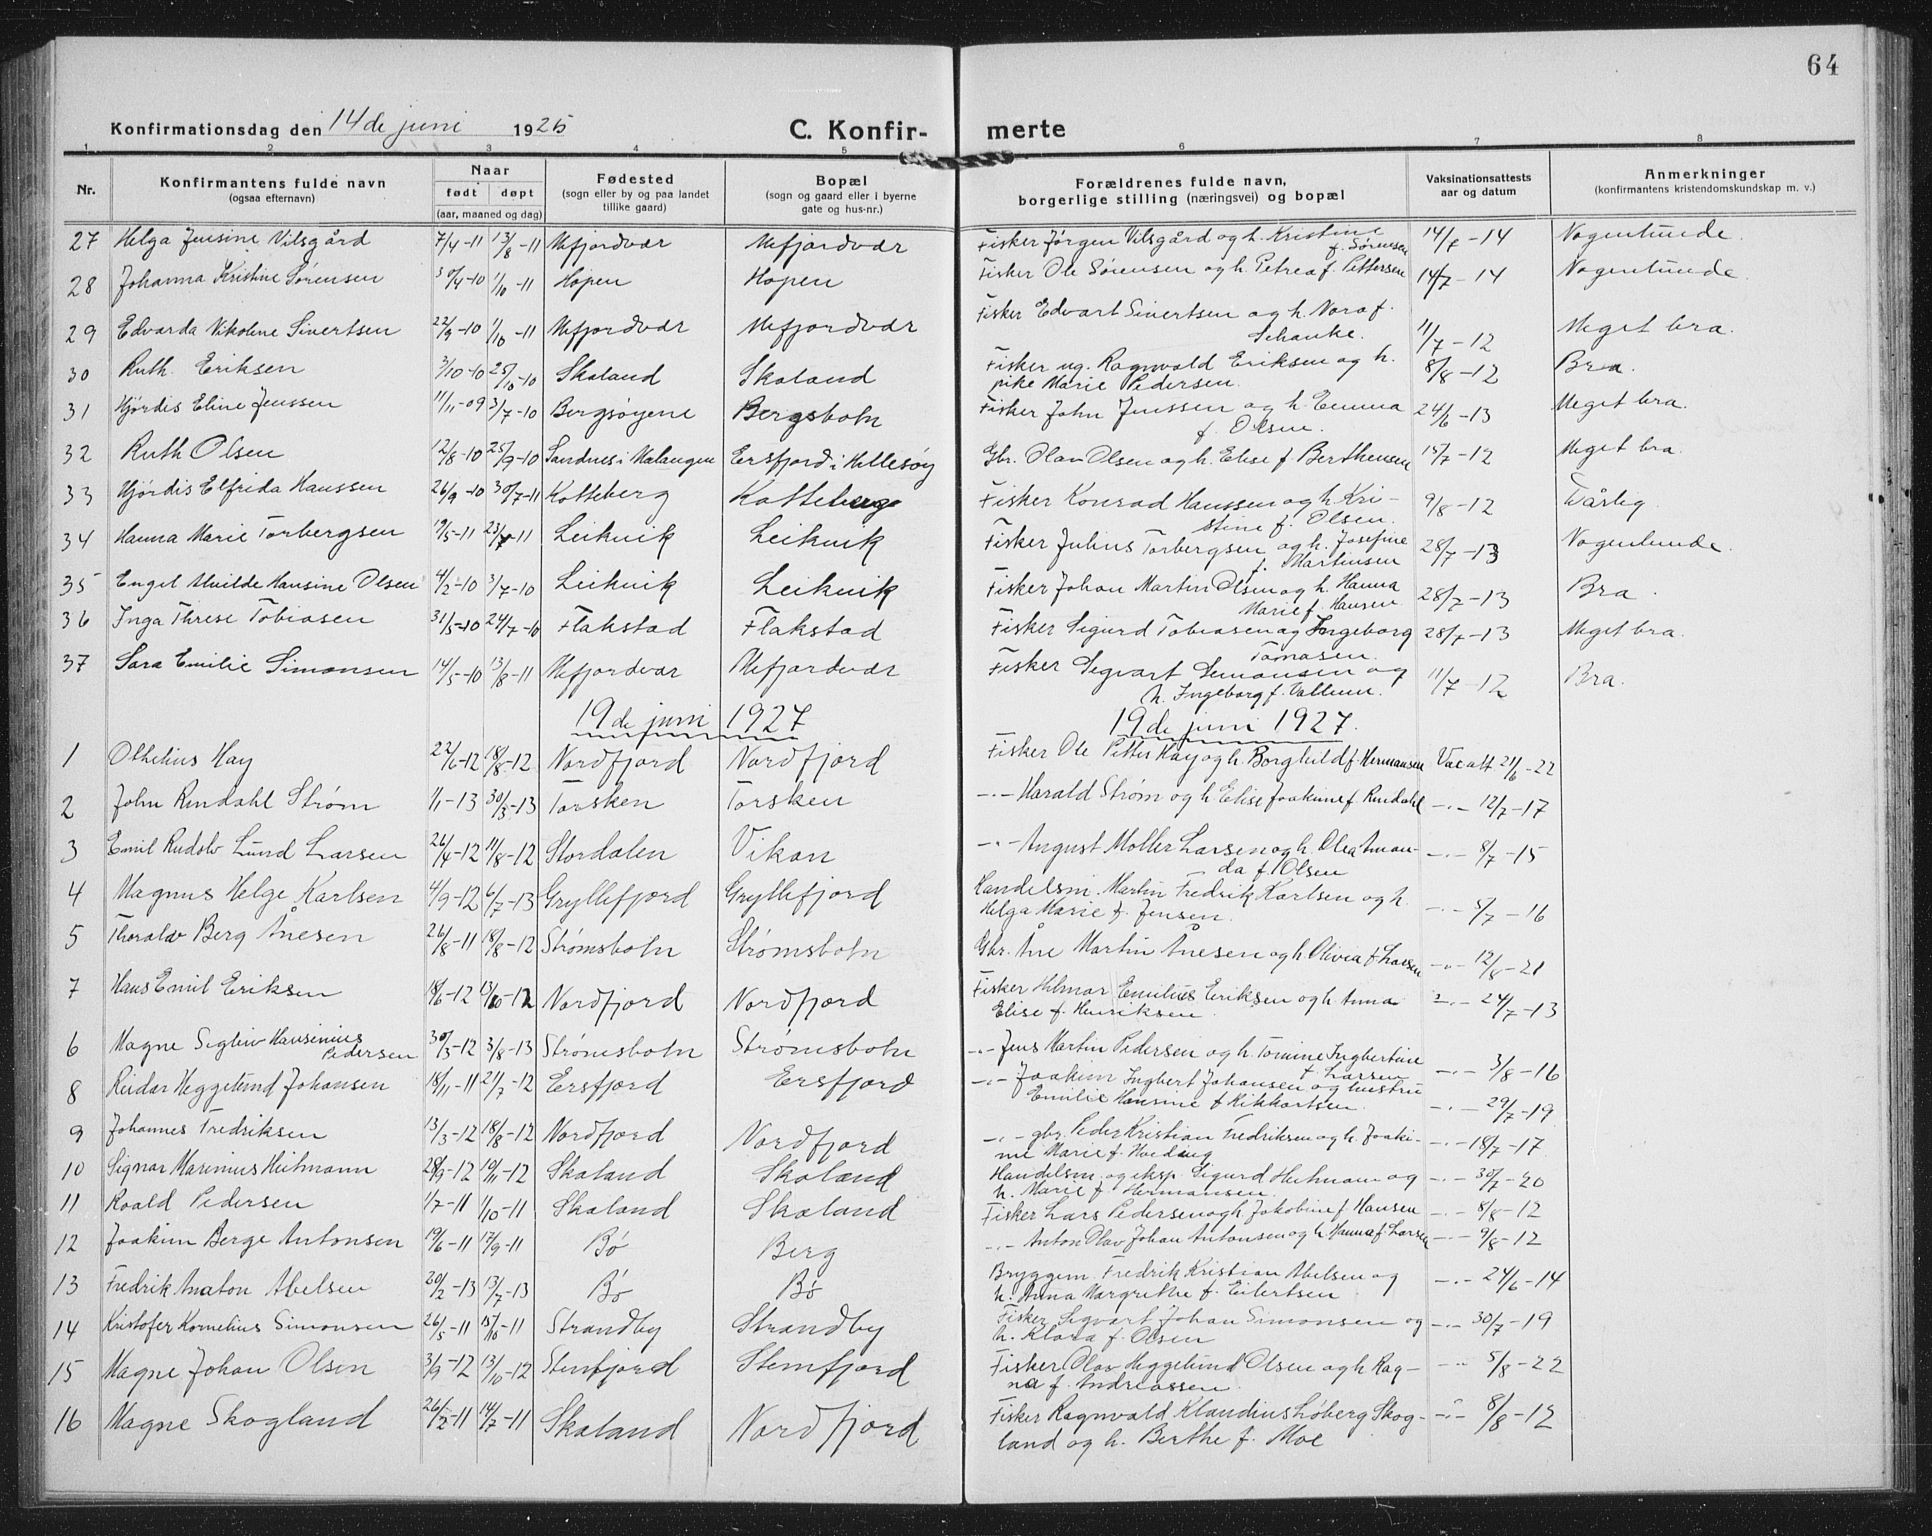 64
Konfirmationsdag den 14 de juni 1925
C. Konfir- merte
1 2 3 4 5 6 7 8
Nr. Konfirmantens fulde navn (ogsaa efternavn) Naar født døpt (aar, maaned og dag) Fødested (sogn eller by og paa landet tillike gaard) Bopæl (sogn og gaard eller i byerne gate og hus-nr.) Forældrenes fulde navn, borgerlige stilling (næringsvei) og bopæl Vaksinationsattests aar og datum Anmerkninger (konfirmantens kristendomskundskap m. v.)
27 Helga Jensine Vilsgård 7/4-11 13/8-11 Mefjordvær Mefjordvær Fisker Jørgen Vilsgård og h. Kristine f. Sørensen 14/7-14 Nogenlunde.
28 Johanna Kristine Sørensen 30/4-10 1/10-11 Hopen Hopen Fisker Ole Sørensen og h. Petrea f. Pettersen 14/7-14 Nogenlunde.
29 Edvarda Nikoline Sivertsen 22/9-10 1/10-11 Mefjordvær Mefjordvær Fisker Edvart Sivertsen og h. Nora f. Schanke. 11/7-12 Meget bra.
30 Ruth Eriksen 3/10-10 25/10-10 Skaland Skaland Fisker ug. Ragnvald Eriksen og h. pike Marie Pedersen. 8/8-12 Bra.
31 Hjørdis Eline Jenssen 11/11-09 3/7-10 Bergsøyene Bergsbotn Fisker John Jenssen og h. Emma f. Olsen. 24/6-13 Meget bra.
32 Ruth Olsen 12/8-10 25/9-10 Sandnes i Malangen Ersfjord i Hillesøy Gbr. Olav Olsen og h. Elise f. Berthensen 15/7-12 Meget bra.
33 Hjørdis Elfrida Hanssen 26/9-10 30/7-11 Kolleberg Kolleberg Fisker Konrad Hanssen og h. Kristine f. Olsen. 9/8-12 Dårlig.
34 Hanna Marie Torbergsen 19/5-11 23/7-11 Leikvik Leikvik Fisker Julius Torbergsen og h. Josefine f. Martinsen 28/7-13 Nogenlunde.
35 Engel Hansine Olsen 4/2-10 3/7-10 Leikvik Leikvik Fisker Johan Martin Olsen og h. Hanna Marie f. Hansen. 28/7-13 Bra.
36 Inga Threse Tobiasen 31/5-10 24/7-10 Flakstad Flakstad Fisker Sigurd Tobiasen og Ingeborg Tomasen. 28/7-13 Meget bra.
37 Sara Emilie Simonsen 14/5-10 13/8-11 Mefjordvær Mefjordvær Fisker Segvart Simonsen og h. Ingeborg f. Vallum. 11/7-12 Bra.
19 de juni 1927 19 de juni 1927.
1 Othelius Hay 22/6-12 18/8-12 Nordfjord Nordfjord Fisker Ole Petter Hay og h. Borghild f. Hermansen Vac att 21/6-22
2 John Rendahl Strøm 1/1-13 30/3-13 Torsken Torsken -"- Harald Strøm og h. Elise Joakime f. Rendahl -"- 12/7-17
3 Emil Rudolv Lund Larsen 26/4-12 11/8-12 Stordalen Vikan -"- August Møller Larsen og h. Olea Amanda f. Olsen -"- 8/7-15
4 Magnus Helge Karlsen 4/9-12 6/7-13 Gryllefjord Gryllefjord Handelsm. Martin Fredrik Karlsen og h. Helga Marie f. Jensen. -"- 5/7-16
5 Thoralv Berg Ånesen 26/8-11 18/8-12 Strømsbotn Strømsbotn Gbr. Åne Martin Ånesen og h. Olivia f. Larsen -"- 12/8-21
7 Hans Emil Eriksen 18/6-12 13/10-12 Nordfjord Nordfjord Fisker Hilmar Emilius Eriksen og h. Anna Elise f. Henriksen. -"- 24/7-13
6 Magne Hansinius Pedersen 30/3-12 3/8-13 Strømsbotn Strømsbotn -"- Jens Martin Pedersen og h. Tomine Ingbertine f. Larsen -"- 3/8-16
8 Reidar Heggelund Johansen 18/11-11 21/7-12 Ersfjord Ersfjord -"- Joakim Ingbert Johansen og hustru Emilie Hansine f. Rikkartsen. -"- 29/7-19
9 Johannes Fredriksen 13/3-12 18/8-12 Nordfjord Nordfjord -"- gbr. Peder Kristian Fredriksen og h. Joakimi Marie f. Hveding -"- 18/7-17
10 Signar Marinius Heitmann 28/9-12 19/11-12 Skaland Skaland Handelsm. og eksp. Sigurd Heitmann og h. Marie f. Hermansen. -"- 30/7-20
11 Roald Pedersen 1/7-11 1/10-11 Skaland Skaland Fisker Lars Pedersen og h. Jakobine f. Hansen -"- 8/8-12
12 Joakim Berge Antonsen 19/6-11 17/9-11 Bø Berg -"- Anton Olav Johan Antonsen og h. Hanna f. Larsen -"- 9/8-12
13 Fredrik Anaton Abelsen 20/2-13 13/7-13 Bø Bø Bryggem. Fredrik Kristian Abelsen og h. Anna Margrethe f. Eilertsen -"- 24/6-14
14 Kristofer Kornelius Simonsen 26/5-11 15/10-11 Strandby Strandby Fisker Sigvart Johan Simonsen og h. Klara f. Olsen -"- 30/7-19
15 Magne Johan Olsen 3/9-12 13/10-12 Stenfjord Stenfjord Fisker Olav Heggelund Olsen og h. Ragna f. Andreassen. -"- 5/8-22
16 Magne Skogland 26/2-11 14/7-11 Skaland Nordfjord Fisker Ragnvald Klaudius Løberg Skogland og h. Berthe f. Moe -"- 8/8-12